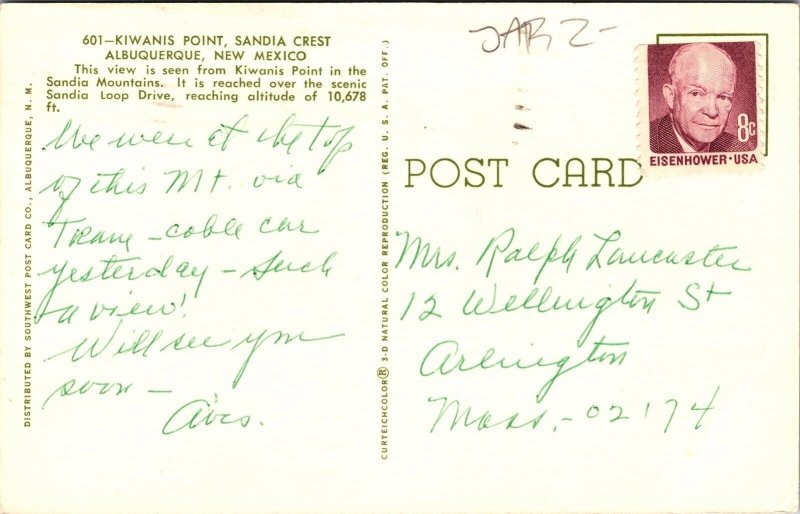 601—KIWANIS POINT, SANDIA CREST
ALBUQUERQUE, NEW MEXICO
This view is seen from Kiwanis Point in the
Sandia Mountains. It is reached over the scenic
Sandia Loop Drive, reaching altitude of 10,678
ft.
We were at the top
of this Mt. via
Tram - cable car
yesterday - Such
a view!
Will see you
soon -
Avis.
DISTRIBUTED BY SOUTHWEST POST CARD CO., ALBUQUERQUE, N. M.
CURTEICHCOLOR® 3-D NATURAL COLOR REPRODUCTION (REG. U. S. A. PAT. OFF.)
JAR 2-
8c
EISENHOWER·USA
POST CARD
Mrs. Ralph Lancaster
12 Wellington St
Arlington
Mass. - 02174